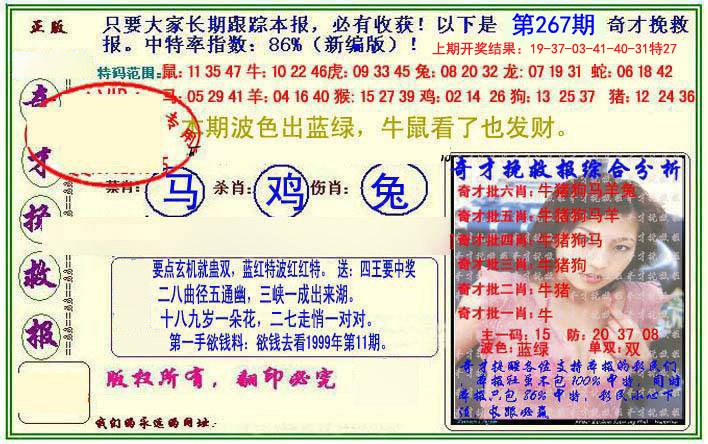 正版
只要大家长期跟踪本报,必有收获!以下是 第267期 奇才挽救
报。中特率指数:86%(新编版)!
上期开奖结果:19-37-03-41-40-31特27
特码范围:鼠:11 35 47 牛:10 22 46虎:09 33 45 兔:08 20 32 龙:07 19 31 蛇:06 18 42
马:05 29 41 羊:04 16 40 猴:15 27 39 鸡:02 14 26 狗:13 25 37 猪:12 24 36
专用
本期波色出蓝绿,牛鼠看了也发财。
奇才挽救报
禁肖: 马 杀肖: 鸡 伤肖: 兔
要点玄机就蛊双,蓝红特波红红特。送:四王要中奖
二八曲径五通幽,三峡一成出来湖。
十八九岁一朵花,二七走悄一对对。
第一手欲钱料:欲钱去看1999年第11期。
版权所有,翻印必究
我们的永远的网址:
奇才挽救报综合分析
奇才批六肖:牛猪狗马羊兔
奇才批五肖:牛猪狗马羊
奇才批四肖:牛猪狗马
奇才批三肖:牛猪狗
奇才批二肖:牛猪
奇才批一肖:牛
主一码:15 防:20 37 08
波色:蓝绿 单双:双
奇才提醒各位支持本报的彩民们
,本报社虽不包100%中特,同时
本报只包86%中特,彩民小心下
注,长跟必赢